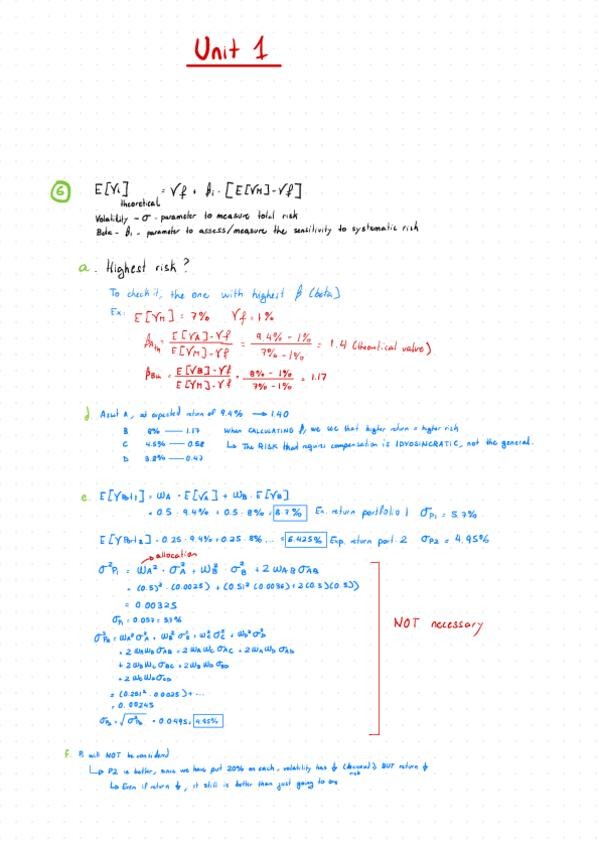 Unit 1
6 E[ri] theoretical = rf + βi · [E[rM] - rf]
Volatility - σ - parameter to measure total risk
Beta - βi - parameter to assess/measure the sensitivity to systematic risk
a. Highest risk?
To check it, the one with highest β (beta)
Ex: E[rM] = 7% rf = 1%
βA th = E[rA] - rf / E[rM] - rf = 9.4% - 1% / 7% - 1% = 1.4 (theoretical value)
βB th = E[rB] - rf / E[rM] - rf = 8% - 1% / 7% - 1% = 1.17
d. Asset A, at expected return of 9.4% → 1.40
B 8% — 1.17 When CALCULATING β, we see that higher return = higher risk
C 4.5% — 0.58 ↳ The RISK that requires compensation is IDYOSINCRATIC, not the general.
D 3.8% — 0.47
e. E[rPort1] = wA · E[rA] + wB · E[rB]
= 0.5 · 9.4% + 0.5 · 8% = 8.7% Ex. return portfolio 1 σP1 = 5.7%
E[rPort2] = 0.25 · 9.4% + 0.25 · 8% ... = 6.425% Exp. return port. 2 σP2 = 4.95%
allocation
σ²P1 = wA² · σ²A + wB² · σ²B + 2 wAB σAB
= (0.5)² · (0.0025) + (0.5)² · (0.0036) + 2(0.5)(0.5))
= 0.00325
σP1 = 0.057 = 5.7%
NOT necessary
σ²P2 = wA² σ²A + wB² σ²B + wC² σ²C + wD² σ²D
+ 2 wA wB σAB + 2 wA wC σAC + 2 wA wD σAD
+ 2 wB wC σBC + 2 wB wD σBD
+ 2 wC wD σCD
= (0.25)² · 0.0025) + ...
= 0.00245
σP2 = √σ²P2 = 0.0495 = 4.95%
f. P1 will NOT be considered
↳ P2 is better, since we have put 20% on each, volatility has ↓ (decreased) risk BUT return ↓
↳ Even if return ↓, it still is better than just going to one